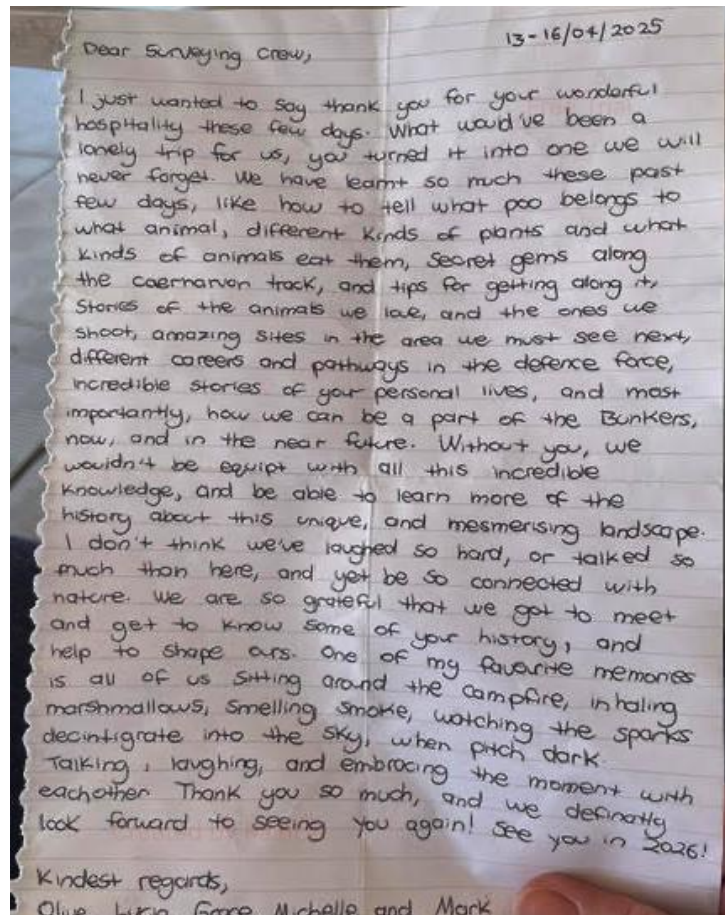 13-16/04/2025
Dear Surveying Crew,
I just wanted to say thank you for your wonderful
hospitality these few days. What would've been a
lonely trip for us, you turned it into one we will
never forget. We have learnt so much these past
few days, like how to tell what poo belongs to
what animal, different kinds of plants and what
kinds of animals eat them, secret gems along
the caernarvon track, and tips for getting along it,
Stories of the animals we love, and the ones we
shoot, amazing sites in the area we must see next,
different careers and pathways in the defence force,
incredible stories of your personal lives, and most
importantly, how we can be a part of the Bunkers,
now, and in the near future. Without you, we
wouldn't be equipt with all this incredible
knowledge, and be able to learn more of the
history about this unique, and mesmerising landscape.
I don't think we've laughed so hard, or talked so
much than here, and yet be so connected with
nature. We are so grateful that we got to meet
and get to know some of your history, and
help to shape ours. One of my favourite memories
is all of us sitting around the campfire, inhaling
marshmallows, smelling smoke, watching the sparks
decintigrate into the sky, when pitch dark.
Talking, laughing, and embracing the moment with
eachother. Thank you so much, and we definatly
look forward to seeing you again! See you in 2026!
Kindest regards,
Olive, Grace, Michelle and Mark